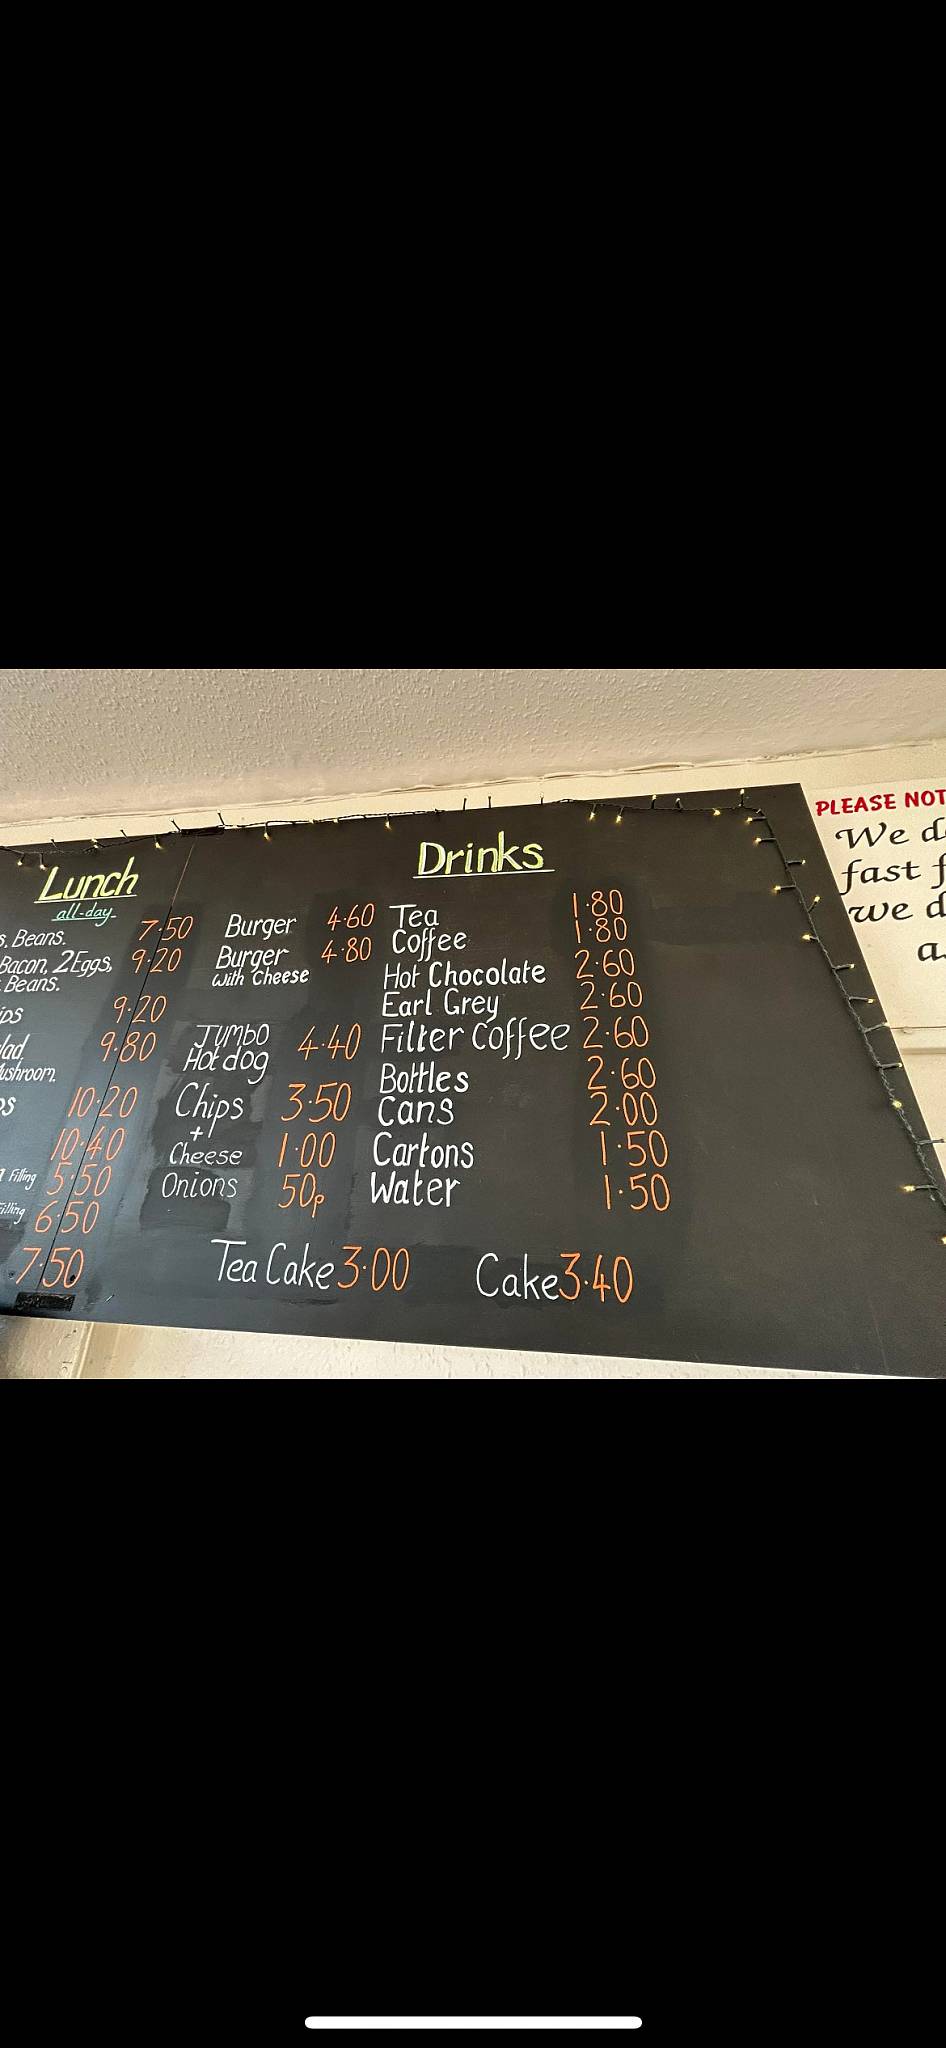 Lunch
all-day
Beans. 7·50
Bacon, 2 Eggs, 9·20
Beans.
9·20
9·80
Mushroom.
10·20
10·40
Filling 5·50
Filling 6·50
7·50
Burger 4·60
Burger 4·80
with Cheese
Jumbo
Hot dog 4·40
Chips 3·50
+
Cheese 1·00
Onions 50p
Drinks
Tea 1·80
Coffee 1·80
Hot Chocolate 2·60
Earl Grey 2·60
Filter Coffee 2·60
Bottles 2·60
Cans 2·00
Cartons 1·50
Water 1·50
Tea Cake 3·00
Cake 3·40
PLEASE NOT
We d
fast f
we d
a